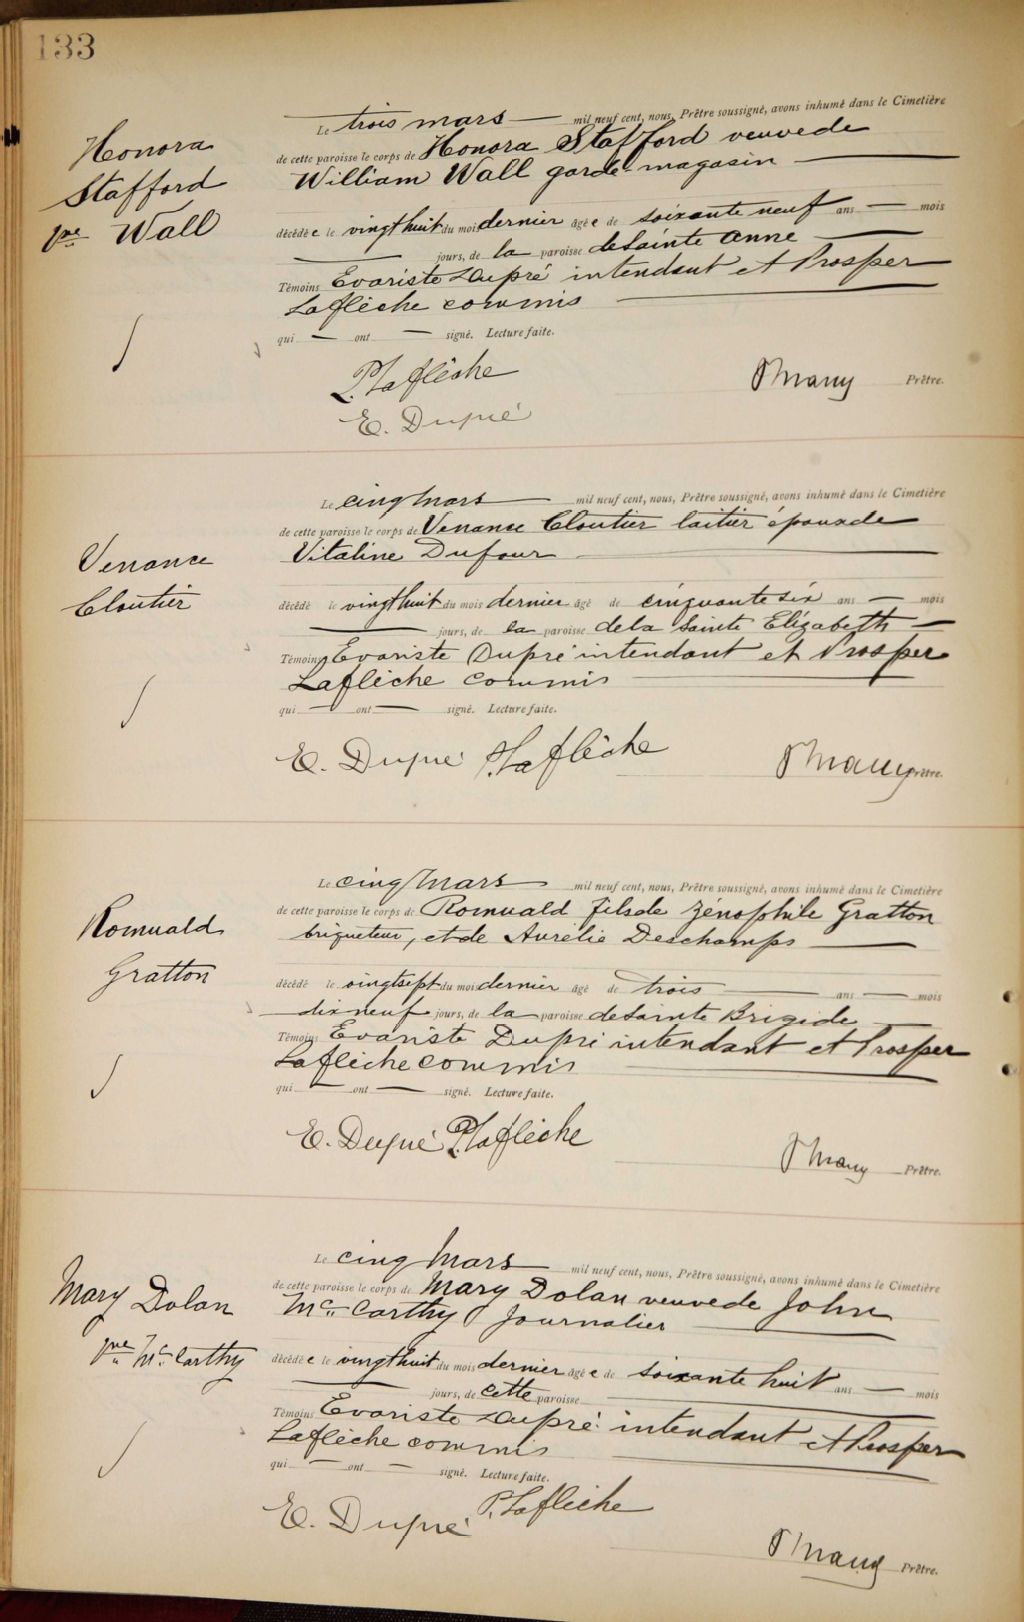 133
Honora
Stafford
Vve Wall
Le trois mars — mil neuf cent, nous, Prêtre soussigné, avons inhumé dans le Cimetière
de cette paroisse le corps de Honora Stafford veuve de
William Wall garde-magasin —
décédée le vingt huit du mois dernier âgée de soixante neuf ans — mois
— jours, de la paroisse de Sainte Anne —
Témoins Evariste Dupré intendant et Prosper
Laflèche commis —
qui — ont — signé. Lecture faite.
P. Laflèche
E. Dupré
Prêtre.
Venance
Cloutier
Le cinq mars — mil neuf cent, nous, Prêtre soussigné, avons inhumé dans le Cimetière
de cette paroisse le corps de Venance Cloutier laitier époux de
Vitaline Dufour —
décédé le vingt huit du mois dernier âgé de cinquante six ans — mois
— jours, de la paroisse de la Sainte Elizabeth —
Témoins Evariste Dupré intendant et Prosper
Laflèche commis —
qui — ont — signé. Lecture faite.
E. Dupré P. Laflèche
Prêtre.
Romuald
Gratton
Le cinq mars — mil neuf cent, nous, Prêtre soussigné, avons inhumé dans le Cimetière
de cette paroisse le corps de Romuald fils de Zénophile Gratton
briqueteur, et de Aurélie Deschamps —
décédé le vingt sept du mois dernier âgé de trois — ans — mois
dix neuf jours, de la paroisse de Sainte Brigide —
Témoins Evariste Dupré intendant et Prosper
Laflèche commis —
qui — ont — signé. Lecture faite.
E. Dupré P. Laflèche
Prêtre.
Mary Dolan
Vve McCarthy
Le cinq Mars — mil neuf cent, nous, Prêtre soussigné, avons inhumé dans le Cimetière
de cette paroisse le corps de Mary Dolan veuve de John
McCarthy Journalier —
décédée le vingt huit du mois dernier âgée de soixante huit ans — mois
— jours, de cette paroisse —
Témoins Evariste Dupré intendant et Prosper
Laflèche commis —
qui — ont — signé. Lecture faite.
E. Dupré P. Laflèche
Prêtre.